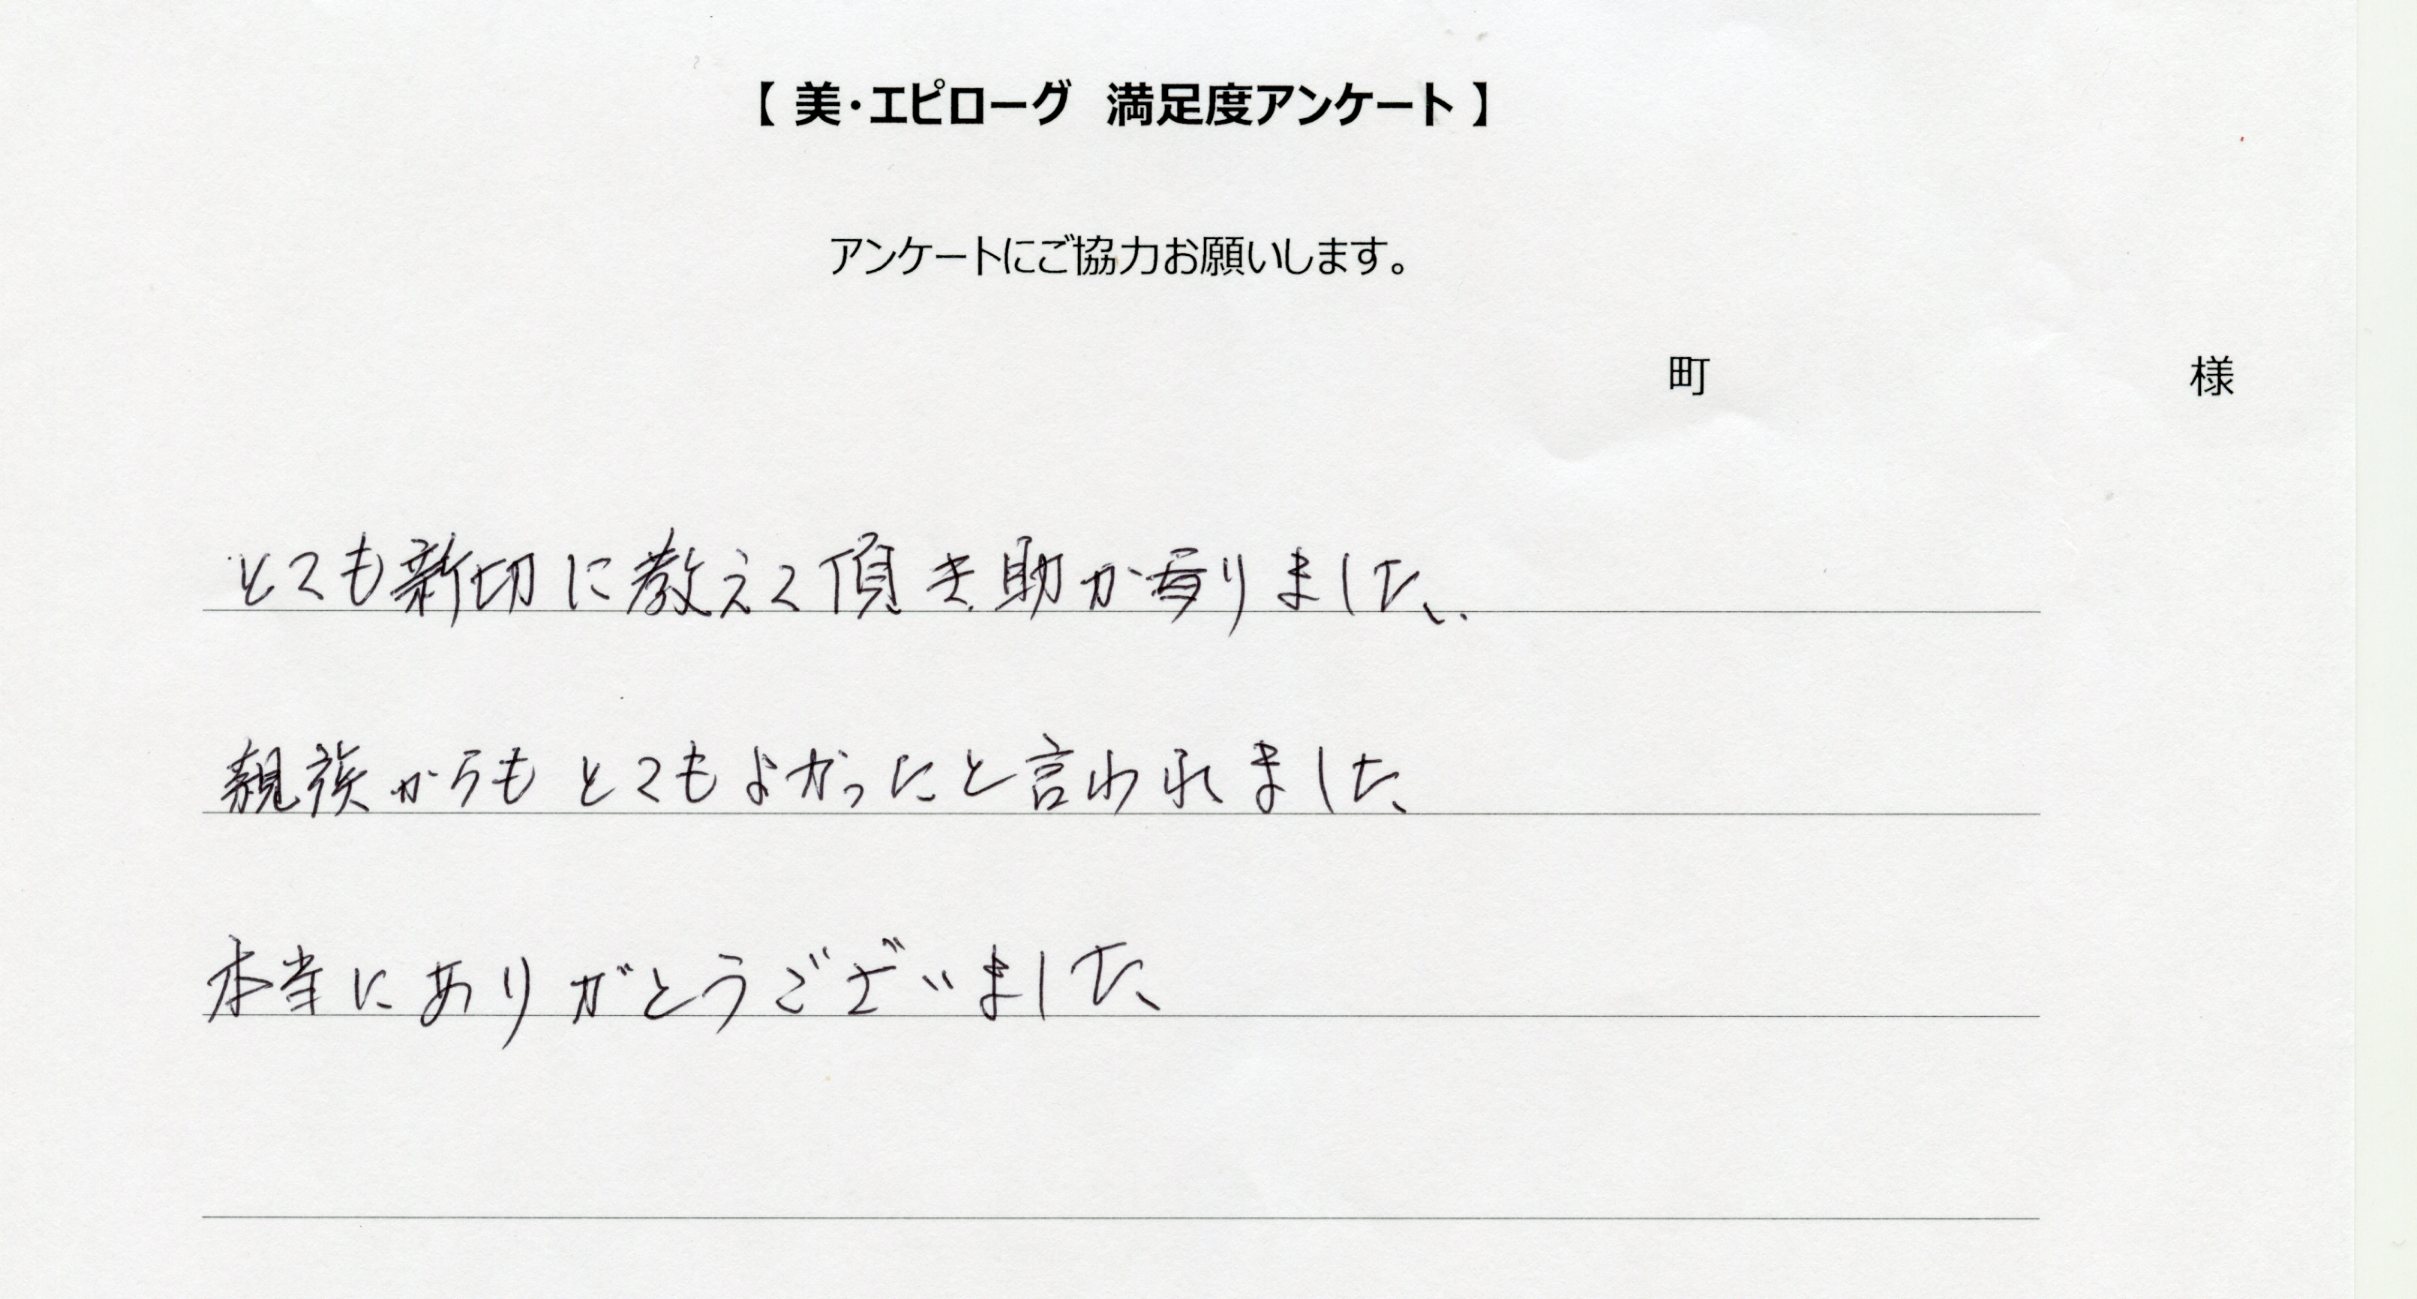 【 美・エピローグ 満足度アンケート 】
アンケートにご協力お願いします。
町 様
とても新切に教えて頂き助かりました、
親族からもとてもよかったと言われました
本当にありがとうございました